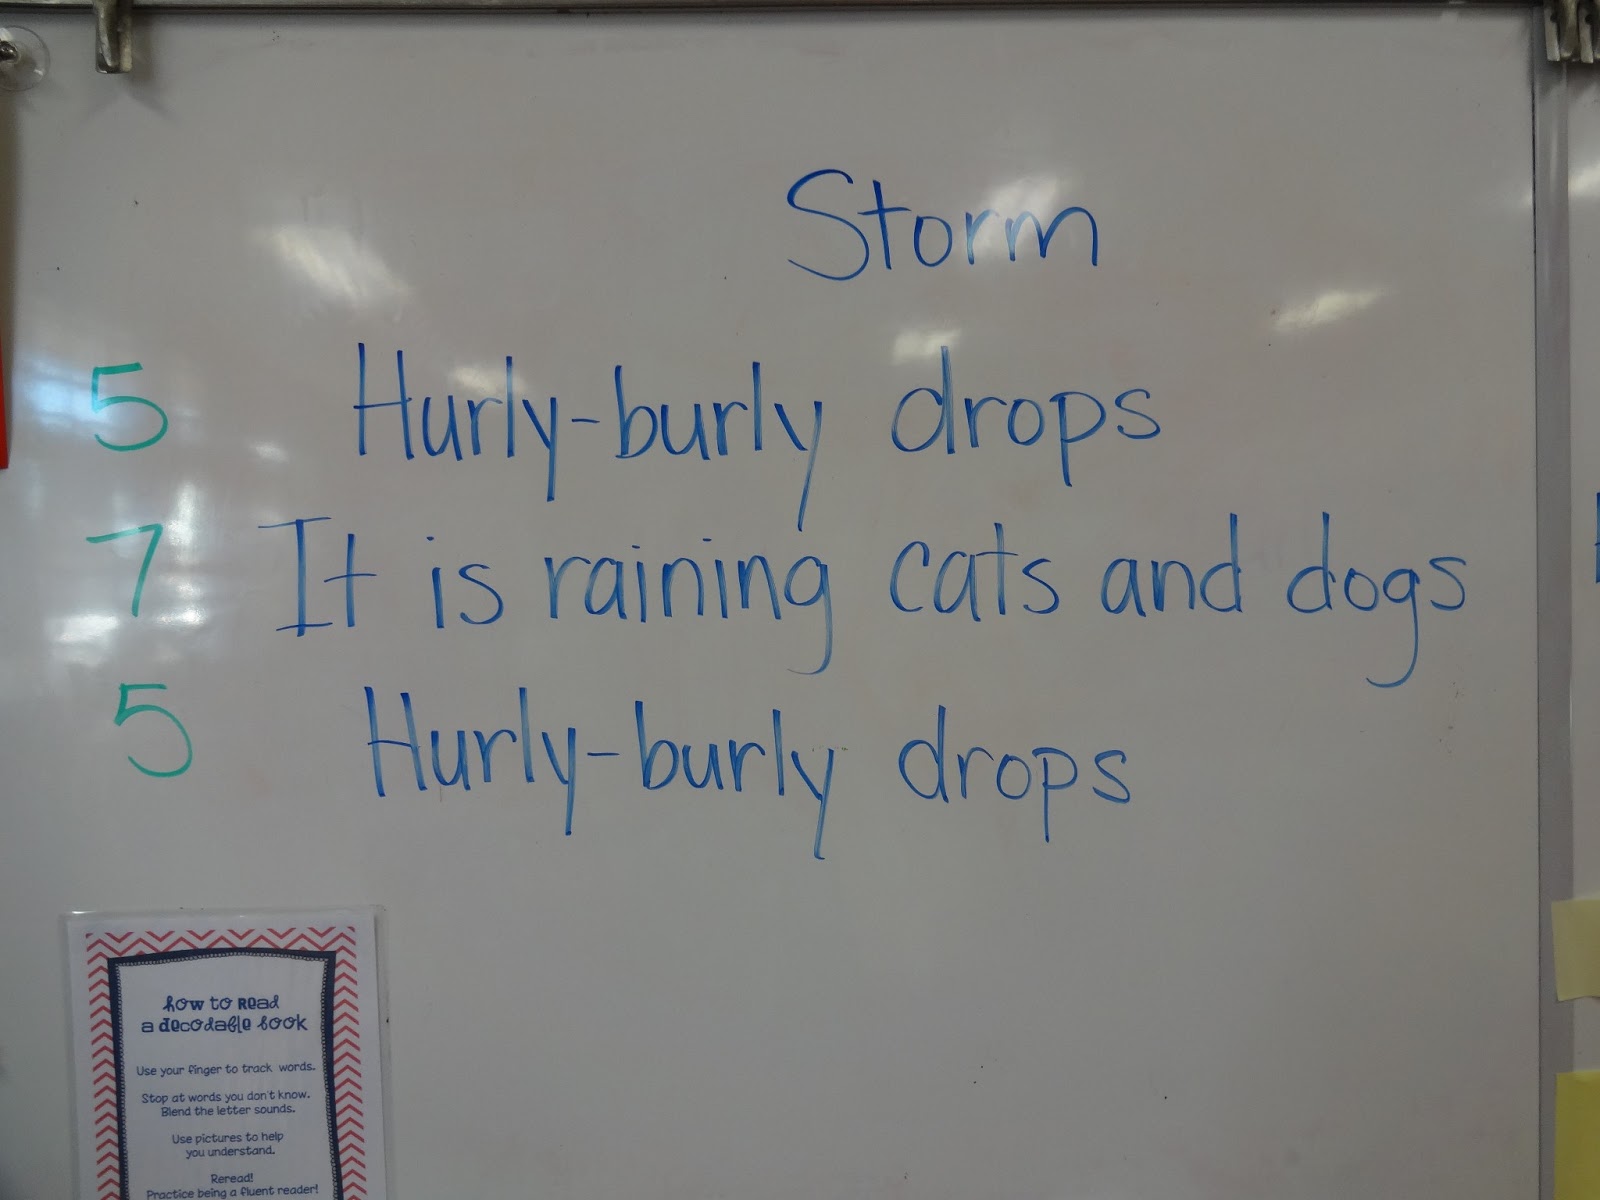 Storm
5 Hurly-burly drops
7 It is raining cats and dogs
5 Hurly-burly drops
How to Read
a Decodable Book
Use your finger to track words.
Stop at words you don't know.
Blend the letter sounds.
Use pictures to help
you understand.
Reread!
Practice being a fluent reader!